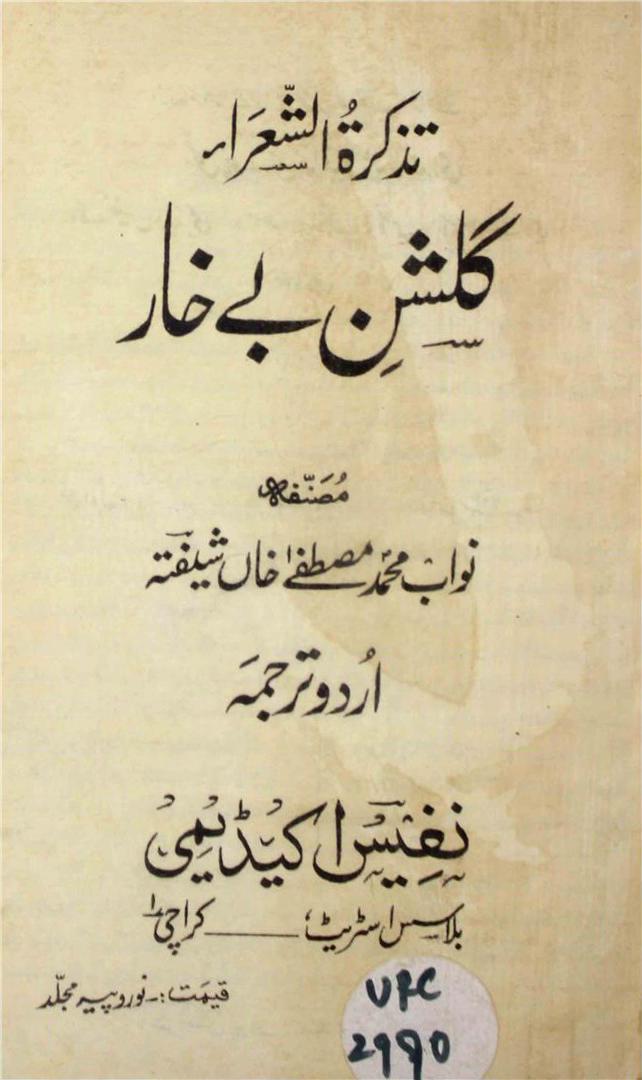 تذکرۃ الشّعراء
گلشنِ بے خار
مُصَنّفہ
نواب محمد مصطفےٰ خاں شیفتہ
اُردو ترجمہ
نفیس اکیڈیمی
بلاسس اسٹریٹ، ــــــ کراچی ۱
قیمت:۔ نو روپیہ مجلّد
UPC
2990